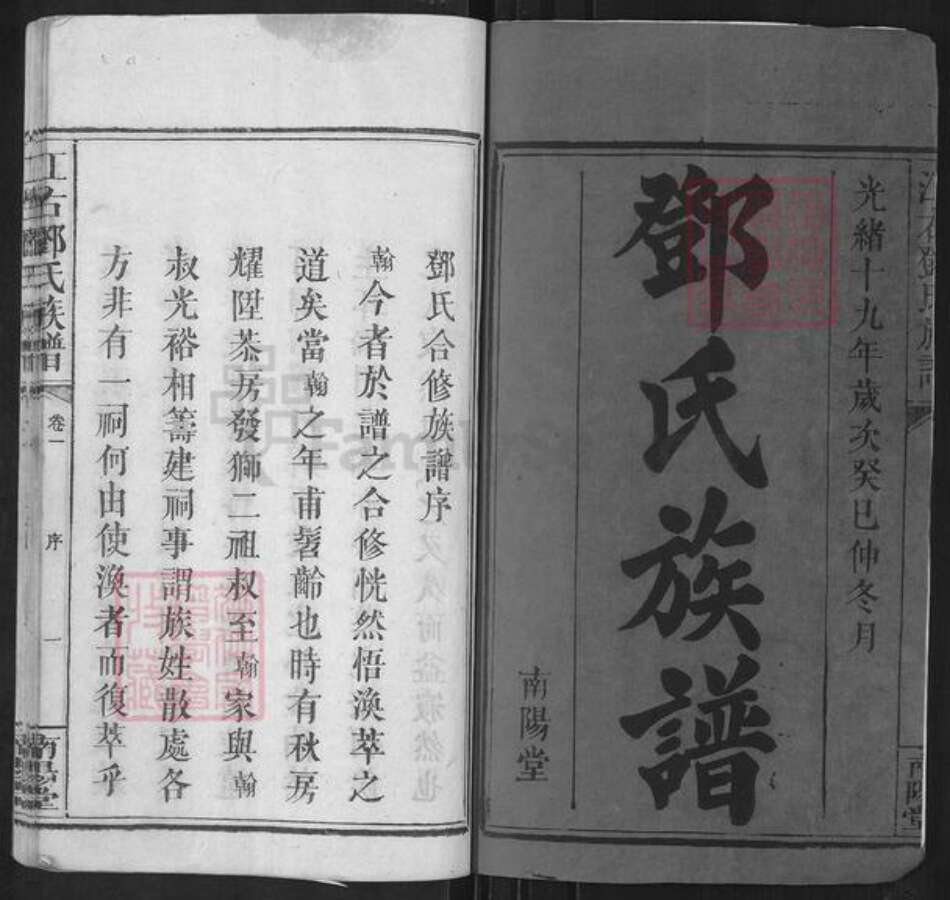 光緒十九年歲次癸巳仲冬月
鄧氏族譜
南陽堂
鄧氏合修族譜序
翰今者於譜之合修恍然悟渙萃之
道矣當翰之年甫髫齡也時有秋房
耀陞恭房發獅二祖叔至翰家與翰
叔光裕相籌建祠事謂族姓散處各
方非有一祠何由使渙者而復萃乎
江右鄧氏族譜
卷一
序
一
南陽堂